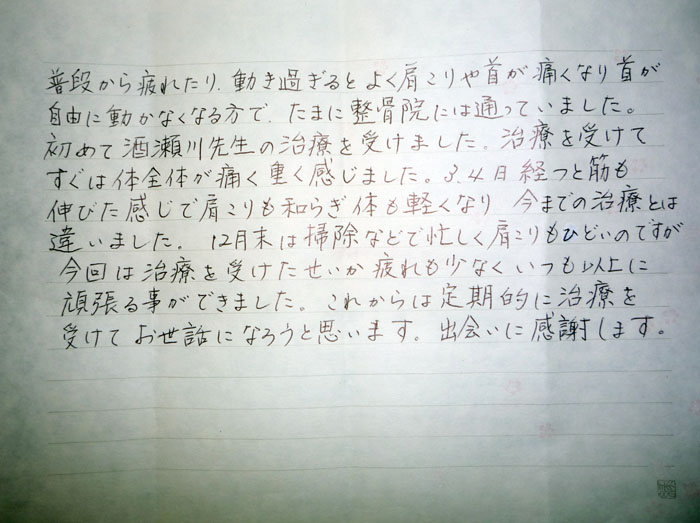 普段から疲れたり、動き過ぎると よく肩こりや首が 痛くなり首が
自由に動かなくなる方で、たまに整骨院には通っていました。
初めて酒瀬川先生の治療を受けました。治療を受けて
すぐは体全体が痛く重く感じました。3.4日経つと筋も
伸びた感じで肩こりも和らぎ体も軽くなり 今までの治療とは
違いました。12月末は掃除などで忙しく肩こりもひどいのですが
今回は治療を受けたせいか疲れも少なくいつも以上に
頑張る事ができました。これからは定期的に治療を
受けて お世話になろうと思います。出会いに感謝します。